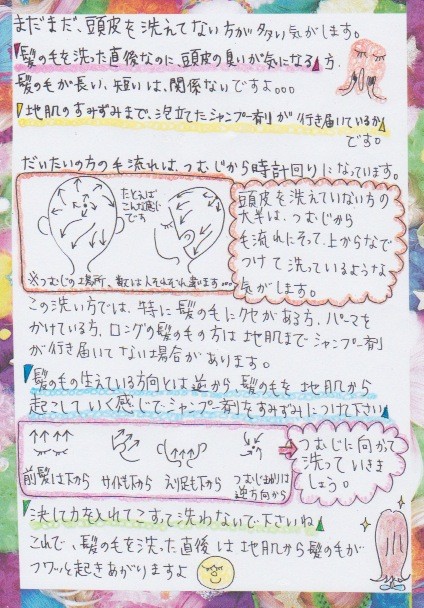 まだまだ、頭皮を洗えてない方が多い気がします。
「髪の毛を洗った直後なのに、頭皮の臭いが気になる」方、
髪の毛が長い、短いは、関係ないですよ。。。
「地肌のすみずみまで、泡立てたシャンプー剤が行き届いているか」
です。
だいたいの方の毛流れは、つむじから時計回りになっています。
たとえば
こんな感じ
です
※つむじの場所、数は人それぞれ違います…
頭皮を洗えていない方の
大半は、つむじから
毛流れにそって、上からなで
つけて洗っているような
気がします。
この洗い方では、特に髪の毛にクセがある方、パーマを
かけている方、ロングの髪の毛の方は地肌までシャンプー剤
が行き届いてない場合があります。
「髪の毛の生えている方向とは逆から、髪の毛を地肌から
起こしていく感じでシャンプー剤をすみずみにつけて下さい」
前髪は下から
サイドも下から
えり足も下から
つむじまわりは
逆方向から
つむじに向かって
洗っていきま
しょう。
「決して力を入れてこすって洗わないで下さいね」
これで、髪の毛を洗った直後は地肌から髪の毛が
フワッと起きあがりますよ